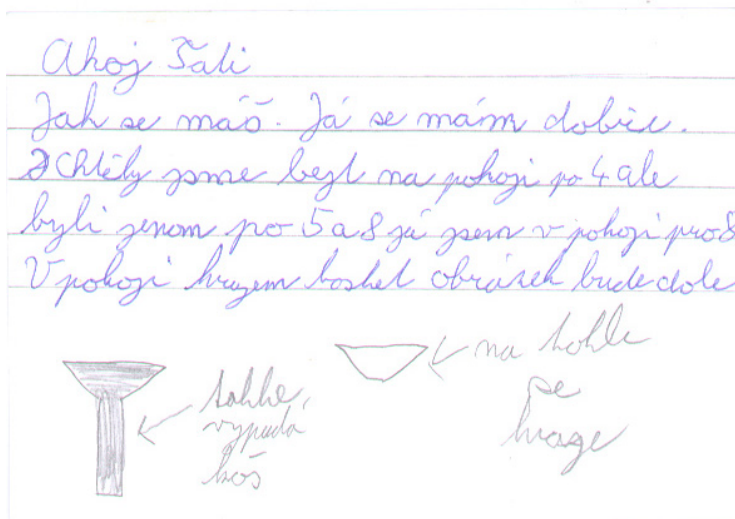 Ahoj Tali
Jak se máš. Já se mám dobře.
Chtěly jsme bejt na pokoji po 4 ale
byli jenom po 5 a 8 já jsem v pokoji pro 8
V pokoji hrajem basket obrázek bude dole
takhle
vypadá
koš
na tohle
se
hraje